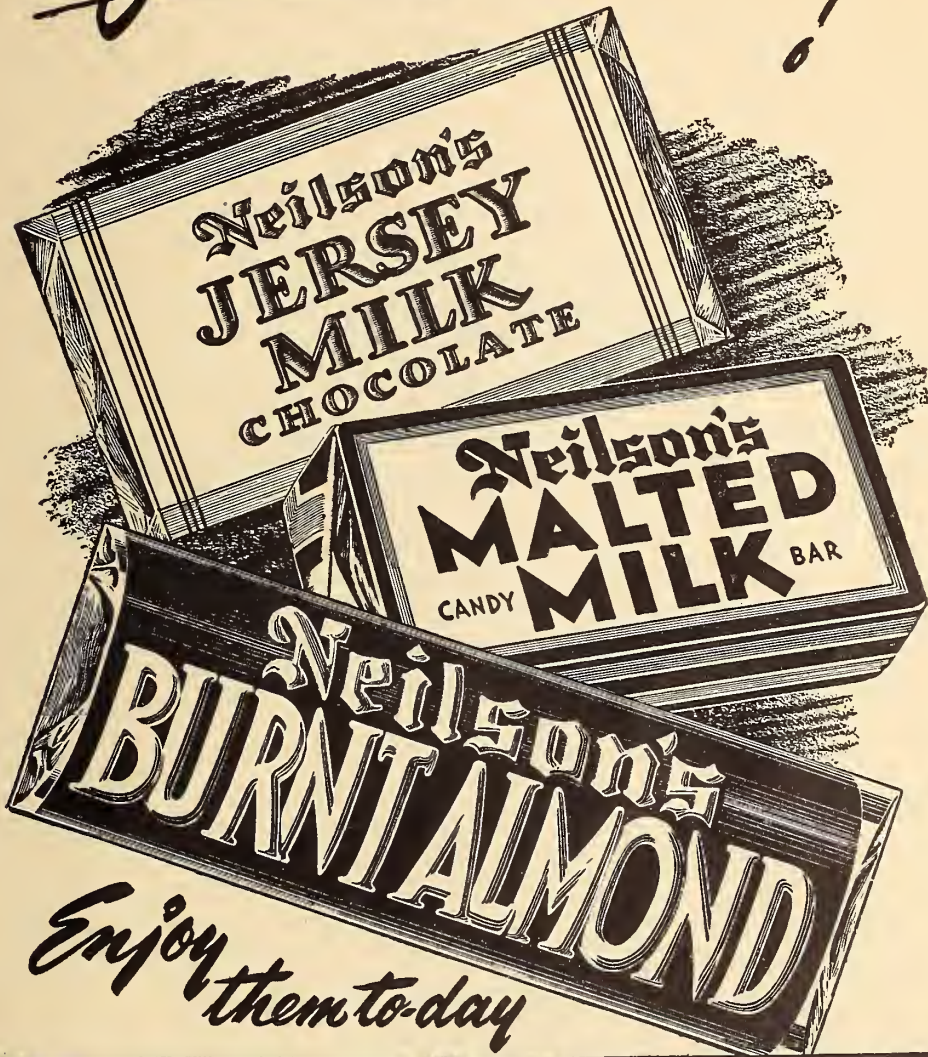 Neilson's
JERSEY
MILK
CHOCOLATE
Neilson's
MALTED
CANDY MILK BAR
Neilson's
BURNT ALMOND
Enjoy
them to-day